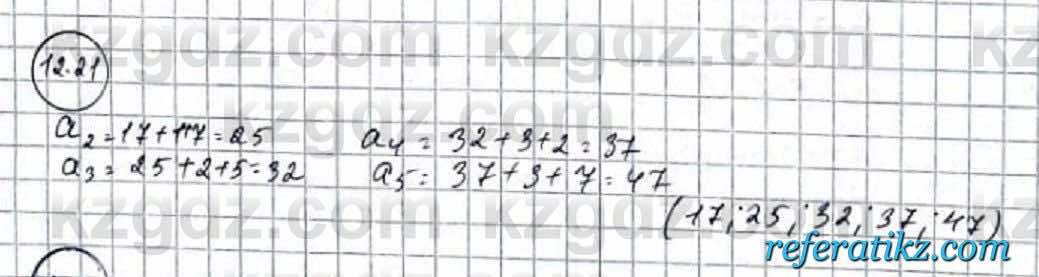 kzgdz.com kzgdz.com kz
12.21
a2 = 17+1+7 = 25
a3 = 25+2+5 = 32
a4 = 32+3+2 = 37
a5 = 37+3+7 = 47
kzgdz.com
(17; 25; 32; 37; 47)
kzgdz.com kzgdz.com kz
referatikz.com